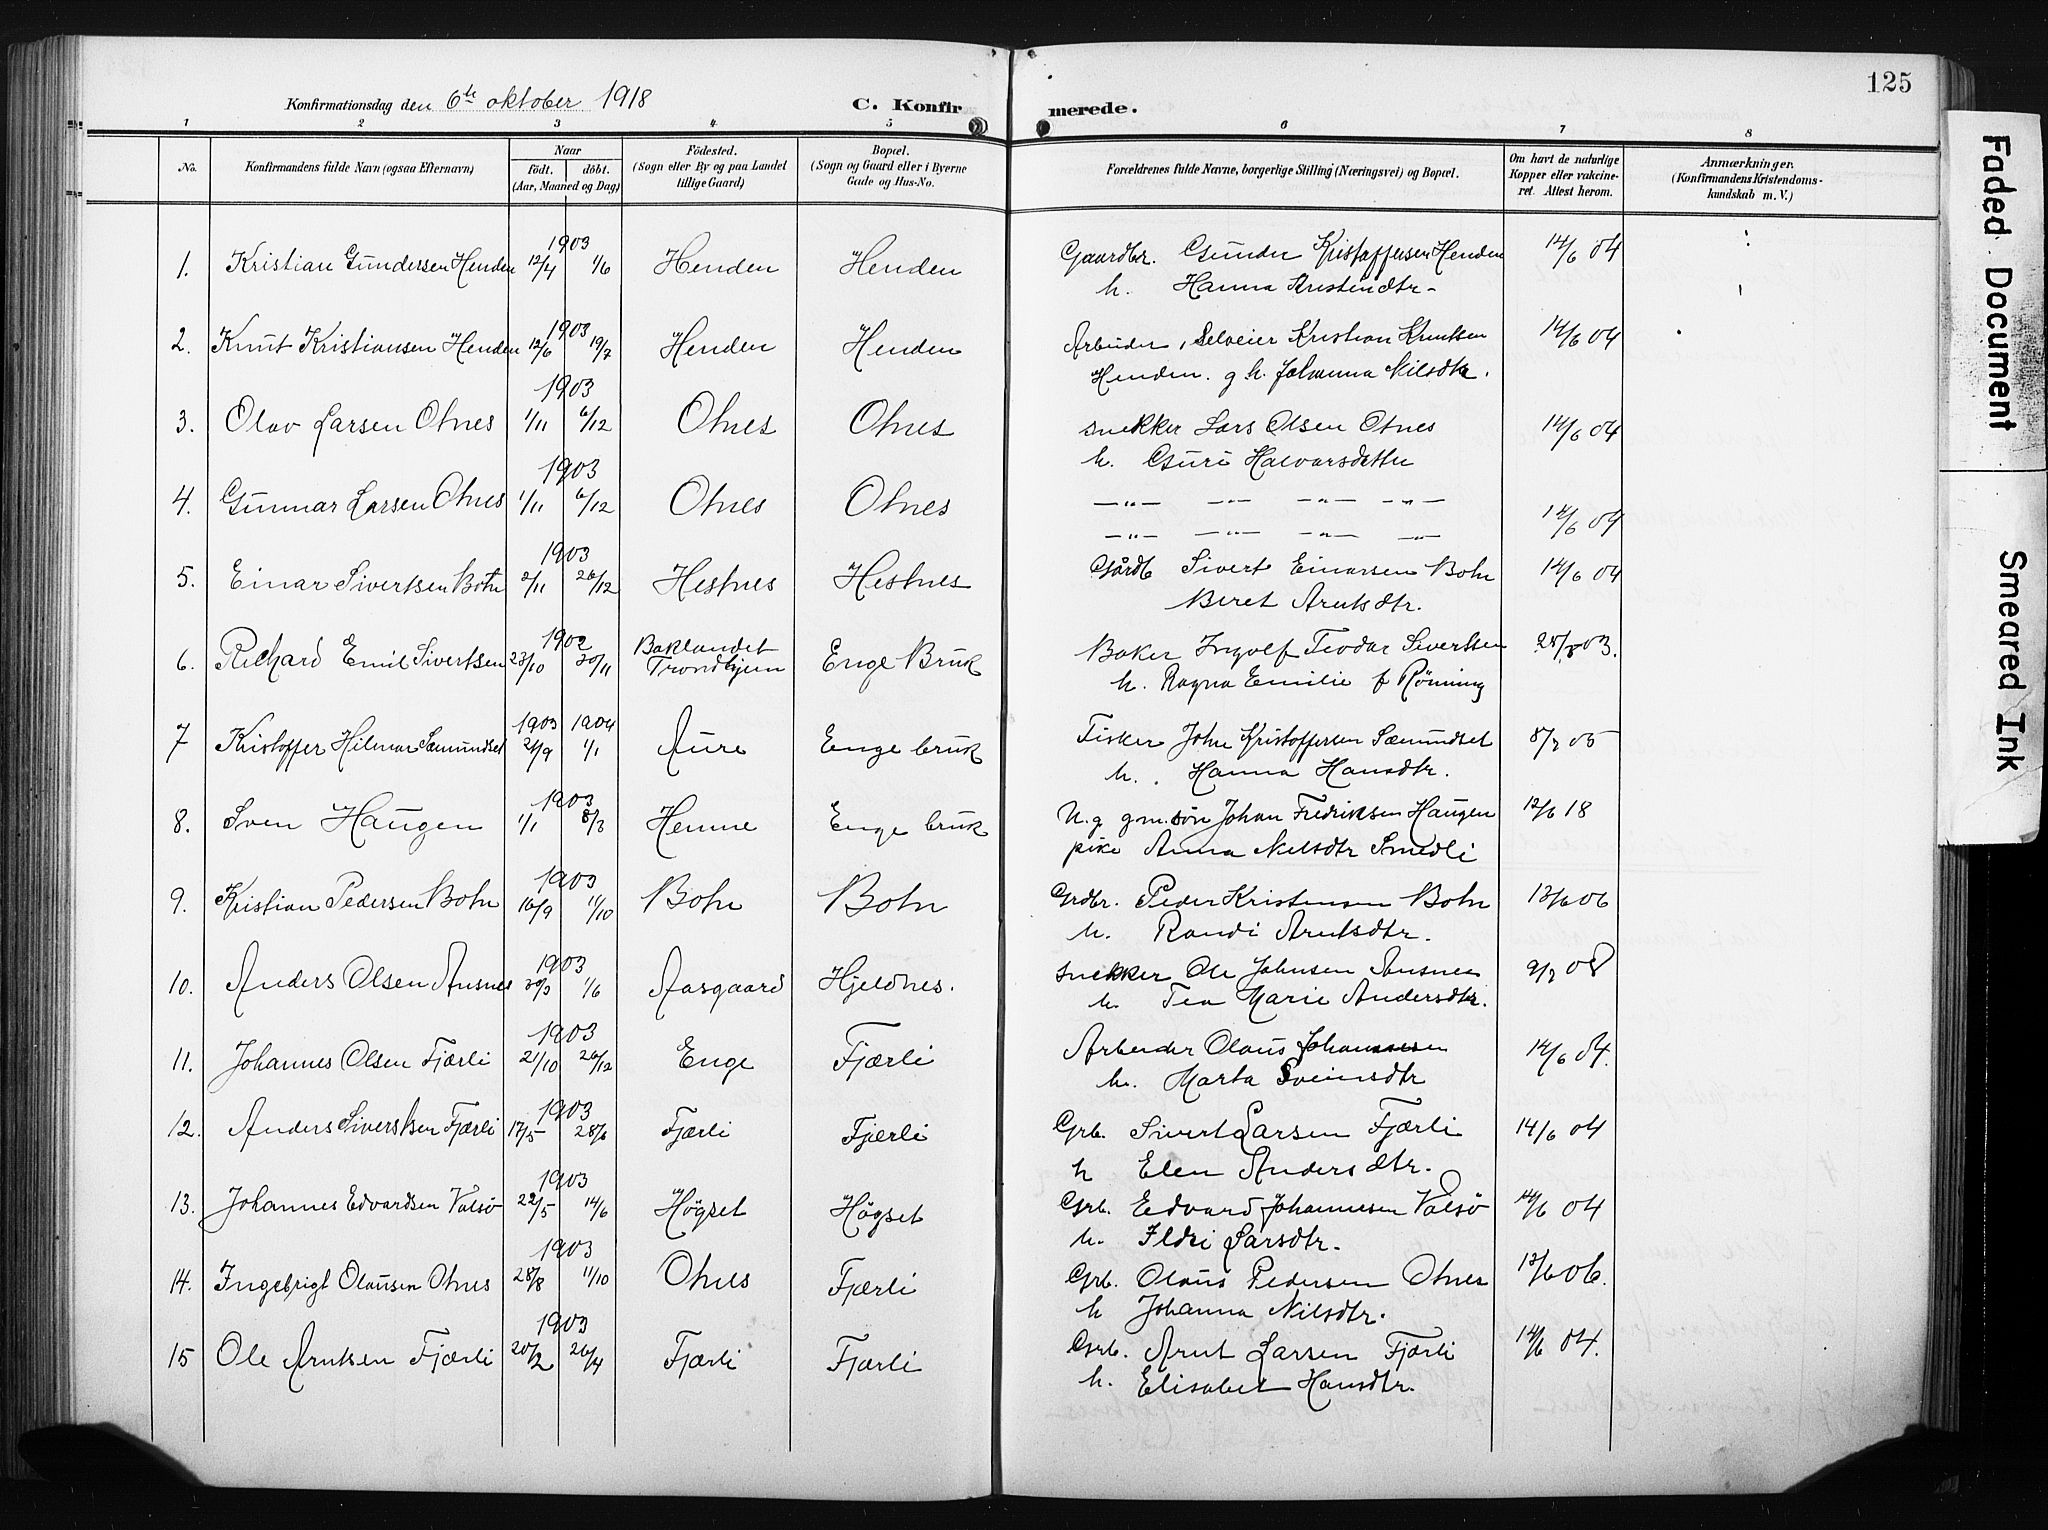 125
Konfirmationsdag den 6te oktober 1918 C. Konfirmerede.
1 2 3 4 5 6 7 8
No. Konfirmandens fulde Navn (ogsaa Efternavn) Naar født. døbt. (Aar, Maaned og Dag) Fødested. (Sogn eller By og paa Landet tillige Gaard) Bopæl. (Sogn og Gaard eller i Byerne Gade og Hus-No.) Forældrenes fulde Navne, borgerlige Stilling (Næringsvei) og Bopæl. Om havt de naturlige Kopper eller vakcineret. Attest herom. Anmærkninger. (Konfirmandens Kristendomskundskab m. V.)
1. Kristian Gundersen Henden 1903 12/4 1/6 Henden Henden Gaardbr. Gunder Kristoffersen Henden 14/6 04
h. Hanna Kristendtr-
2. Knut Kristiansen Henden 1903 12/6 19/7 Henden Henden Arbeider, Selveier Kristian Knutsen 14/6 04
Henden. g h. Johanna Nilsdtr.
3. Olav Larsen Otnes 1903 1/11 6/12 Otnes Otnes snekker Lars Olsen Otnes 14/6 04
h. Guri Halvarsdatter
4. Gunnar Larsen Otnes 1903 1/11 6/12 Otnes Otnes —„— —„— —„— —„—
—„— —„— —„— —„— 14/6 04
5. Einar Sivertsen Botn 1903 2/11 26/12 Hestnes Hestnes Gårdb Sivert Einarsen Botn 14/6 04
Beret Arntsdtr.
6. Richard Emil Sivertsen 1902 23/10 30/11 Baklandet Trondhjem Enge Bruk Baker Ingolf Teodor Sivertsen 25/8 03.
h. Ragna Emilie f Rönning
7 Kristoffer Hilmar Sæmundset 1903 1904 21/9 1/1 Aure Enge bruk Fisker John Kristoffersen Sæmundset 8/7 05
h. Hanna Hansdtr.
8. Sven Haugen 1903 1/1 8/3 Hemne Enge bruk U. g gm. søn Johan Fredriksen Haugen 12/6 18
pike Anna Nilsdtr Smedli
9. Kristian Pedersen Botn 1903 16/9 11/10 Botn Botn Grdbr. Peder Kristensen Botn 13/6 06
h. Randi Arntsdtr.
10. Anders Olsen Ansnes 1903 30/3 1/6 Aasgaard Hjeldnes. snekker Ole Johnsen Ansnes 9/7 08
h. Tea Marie Andersdtr.
11. Johannes Olsen Fjærli 1903 21/10 26/12 Enge Fjærli Arbeider Olaus Johannesen 14/6 04.
h. Marta Sveinsdtr
12. Anders Sivertsen Fjærli 1903 17/5 28/6 Fjærli Fjærli Grb. Sivert Larsen Fjærli 14/6 04
h Elen Andersdtr.
13. Johannes Edvardsen Valsø 1903 22/5 14/6 Högset Högset Grb. Edvard Johannesen Valsø 14/6 04
h. Ildri Larsdtr.
14. Ingebrigt Olausen Otnes 1903 28/8 11/10 Otnes Fjærli Grb. Olaus Pedersen Otnes 13/6 06.
h Johanna Nilsdtr.
15 Ole Arntsen Fjærli 1903 20/2 26/4 Fjærli Fjærli Grb. Arnt Larsen Fjærli 14/6 04.
h. Elisabet Hansdtr.
Faded Document
Smeared Ink